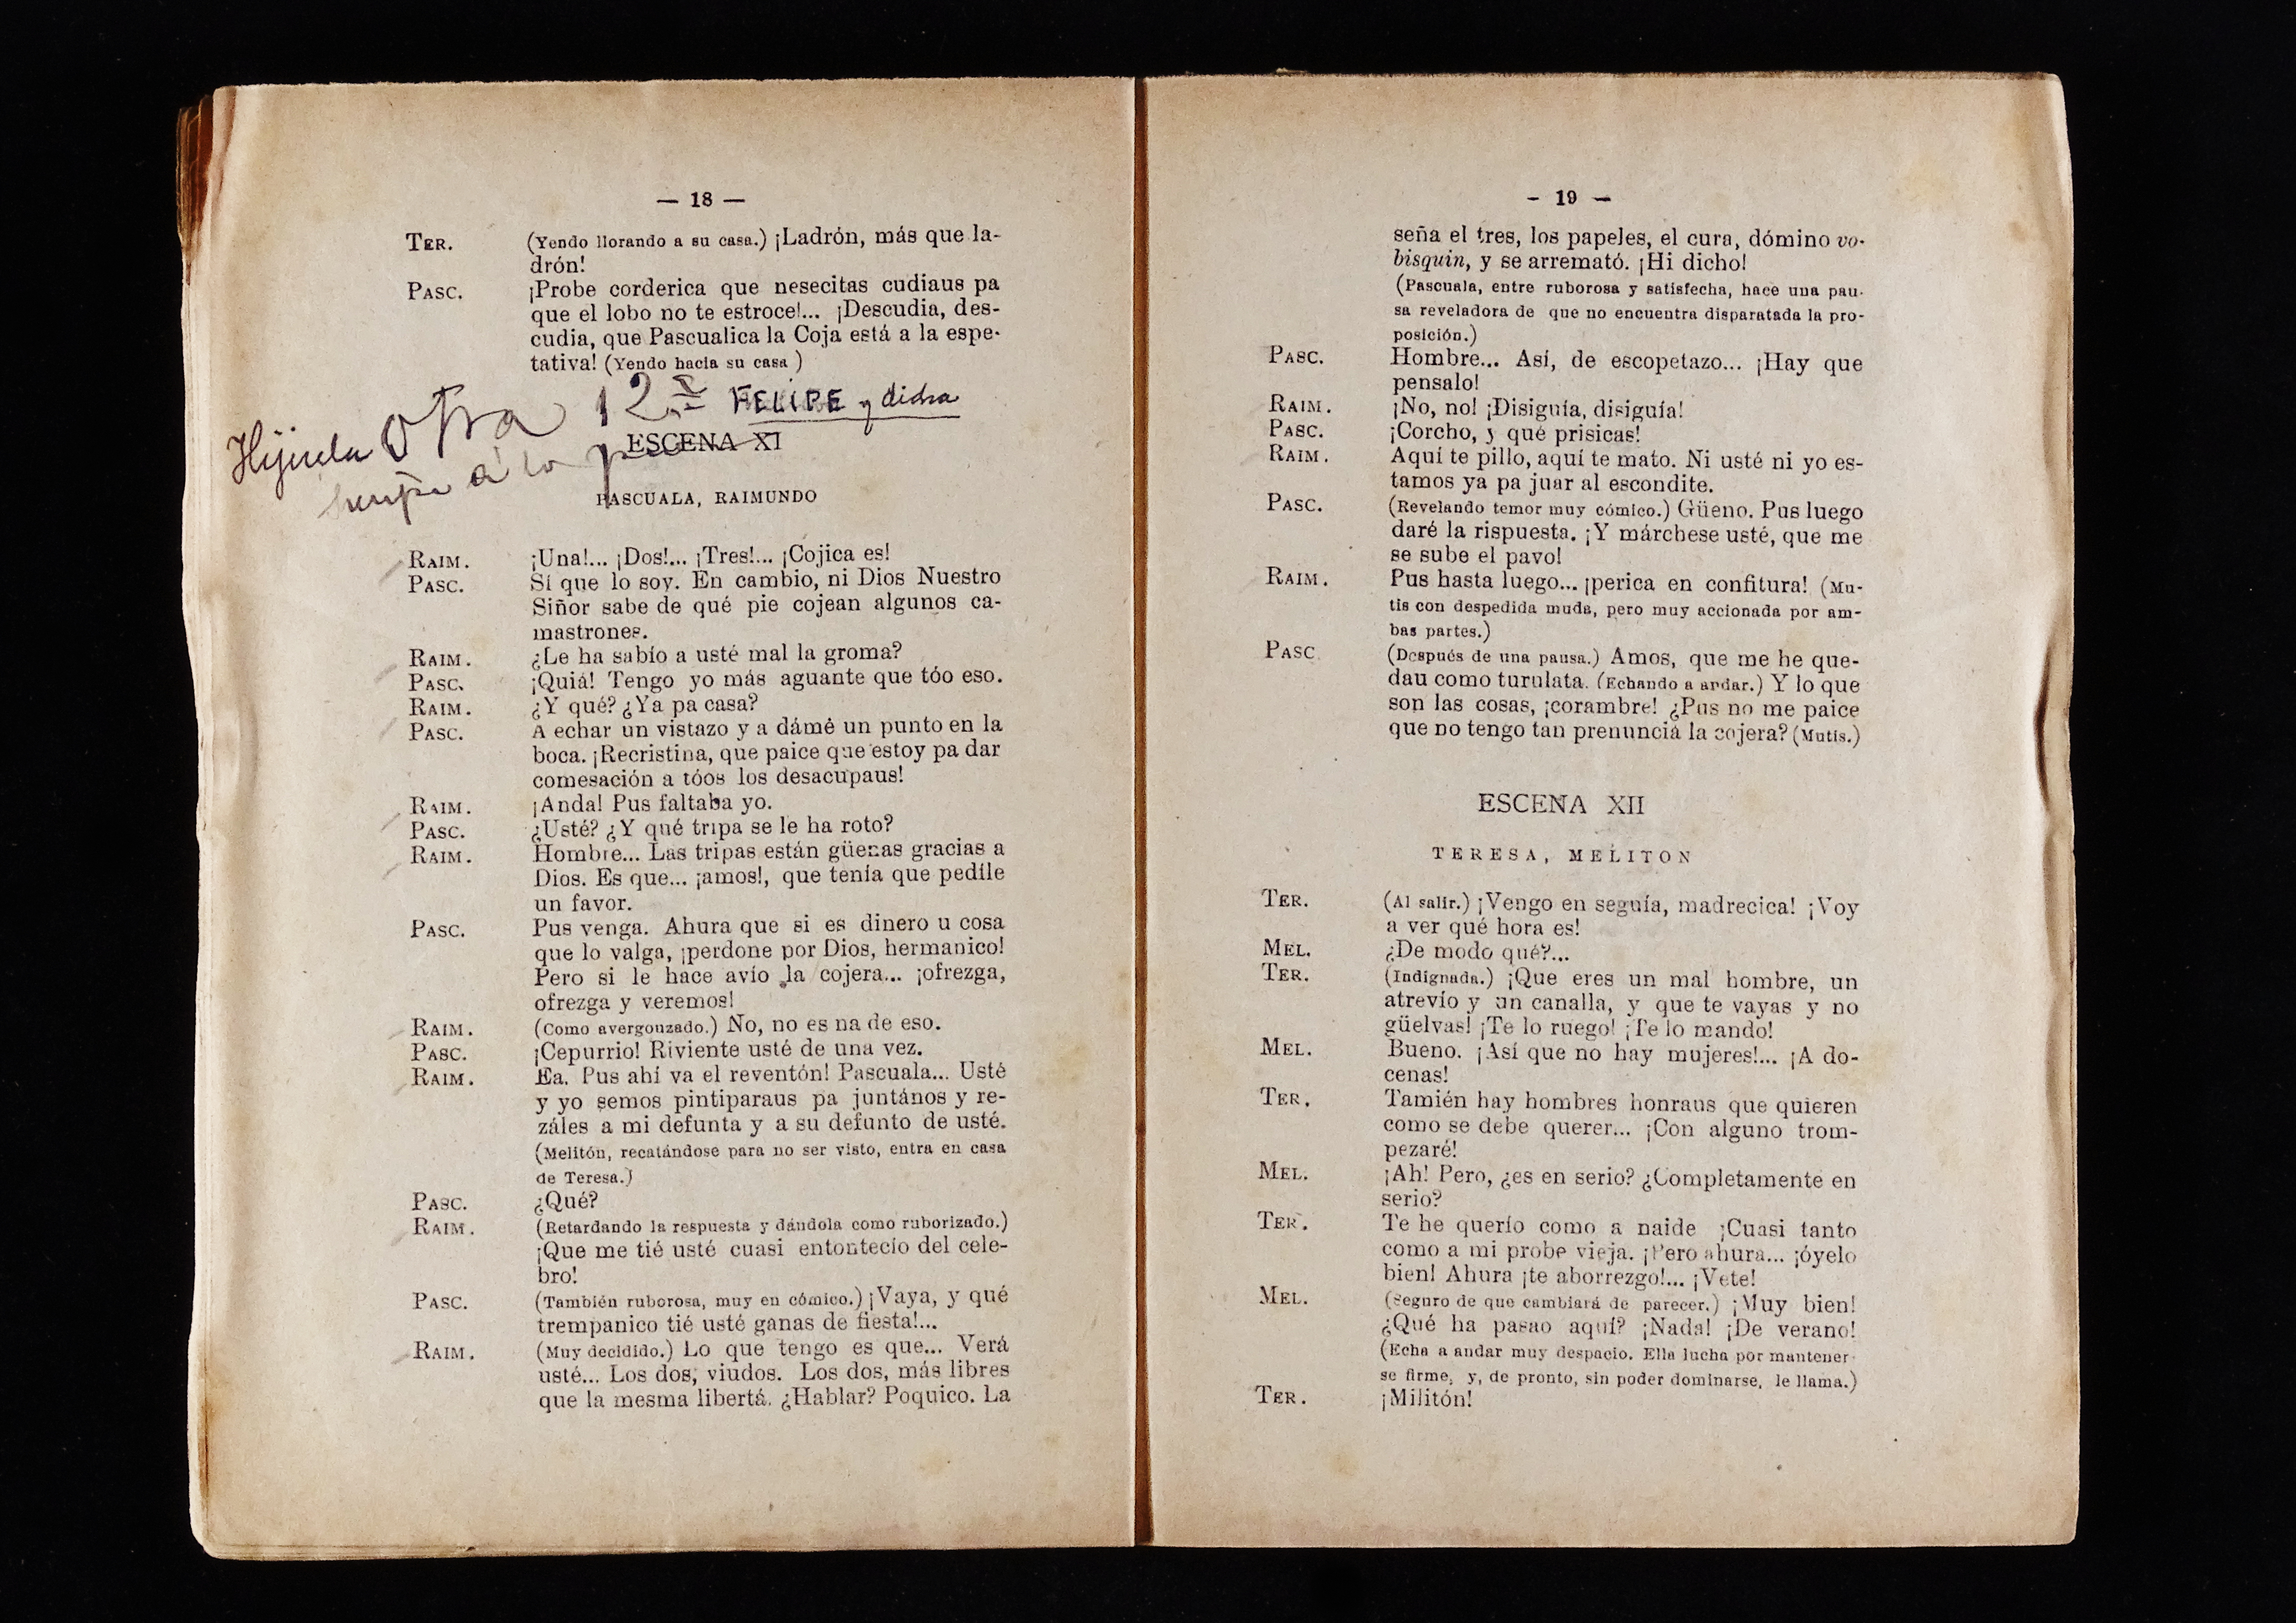 — 18 —
TER. (Yendo llorando a su casa.) ¡Ladrón, más que la-
drón!
PASC. ¡Probe corderica que nesecitas cudiaus pa
que el lobo no te estroce!... ¡Descudia, des-
cudia, que Pascualica la Coja está a la espe-
tativa! (Yendo hacia su casa )
Hijuela Otra 12 FELIPE y dicha
a la
ESCENA XI
PASCUALA, RAIMUNDO
RAIM. ¡Una!... ¡Dos!... ¡Tres!... ¡Cojica es!
PASC. Sí que lo soy. En cambio, ni Dios Nuestro
Siñor sabe de qué pie cojean algunos ca-
mastrones.
RAIM. ¿Le ha sabío a usté mal la groma?
PASC. ¡Quiá! Tengo yo más aguante que tóo eso.
RAIM. ¿Y qué? ¿Ya pa casa?
PASC. A echar un vistazo y a dámé un punto en la
boca. ¡Recristina, que paice que estoy pa dar
comesación a tóos los desacupaus!
RAIM. ¡Anda! Pus faltaba yo.
PASC. ¿Usté? ¿Y qué tripa se le ha roto?
RAIM. Hombre... Las tripas están güenas gracias a
Dios. Es que... ¡amos!, que tenía que pedíle
un favor.
PASC. Pus venga. Ahura que si es dinero u cosa
que lo valga, ¡perdone por Dios, hermanico!
Pero si le hace avío la cojera... ¡ofrezga,
ofrezga y veremos!
RAIM. (Como avergonzado.) No, no es na de eso.
PASC. ¡Cepurrio! Riviente usté de una vez.
RAIM. Ea. Pus ahí va el reventón! Pascuala... Usté
y yo semos pintiparaus pa juntános y re-
záles a mi defunta y a su defunto de usté.
(Melitón, recatándose para no ser visto, entra en casa
de Teresa.)
PASC. ¿Qué?
RAIM. (Retardando la respuesta y dándola como ruborizado.)
¡Que me tié usté cuasi entontecío del cele-
bro!
PASC. (También ruborosa, muy en cómico.) ¡Vaya, y qué
trempanico tié usté ganas de fiesta!...
RAIM. (Muy decidido.) Lo que tengo es que... Verá
usté... Los dos, viudos. Los dos, más libres
que la mesma libertá. ¿Hablar? Poquico. La
- 19 —
seña el tres, los papeles, el cura, dómino vo-
bisquin, y se arremató. ¡Hi dicho!
(Pascuala, entre ruborosa y satisfecha, hace una pau-
sa reveladora de que no encuentra disparatada la pro-
posición.)
PASC. Hombre... Así, de escopetazo... ¡Hay que
pensalo!
RAIM. ¡No, no! ¡Disiguía, disiguía!
PASC. ¡Corcho, y qué prisicas!
RAIM. Aquí te pillo, aquí te mato. Ni usté ni yo es-
tamos ya pa juar al escondite.
PASC. (Revelando temor muy cómico.) Güeno. Pus luego
daré la rispuesta. ¡Y márchese usté, que me
se sube el pavo!
RAIM. Pus hasta luego... ¡perica en confitura! (Mu-
tis con despedida muda, pero muy accionada por am-
bas partes.)
PASC (Después de una pausa.) Amos, que me he que-
dau como turulata. (Echando a andar.) Y lo que
son las cosas, ¡corambre! ¿Pus no me paice
que no tengo tan prenunciá la cojera? (Mutis.)
ESCENA XII
TERESA, MELITON
TER. (Al salir.) ¡Vengo en seguía, madrecica! ¡Voy
a ver qué hora es!
MEL. ¿De modo qué?...
TER. (Indignada.) ¡Que eres un mal hombre, un
atrevío y un canalla, y que te vayas y no
güelvas! ¡Te lo ruego! ¡Te lo mando!
MEL. Bueno. ¡Así que no hay mujeres!... ¡A do-
cenas!
TER. Tamién hay hombres honraus que quieren
como se debe querer... ¡Con alguno trom-
pezaré!
MEL. ¡Ah! Pero, ¿es en serio? ¿Completamente en
serio?
TER. Te he querío como a naide ¡Cuasi tanto
como a mi probe vieja. ¡Pero ahura... ¡óyelo
bien! Ahura ¡te aborrezgo!... ¡Vete!
MEL. (Seguro de que cambiará de parecer.) ¡Muy bien!
¿Qué ha pasao aquí? ¡Nada! ¡De verano!
(Echa a andar muy despacio. Ella lucha por mantener-
se firme, y, de pronto, sin poder dominarse, le llama.)
TER. ¡Militón!